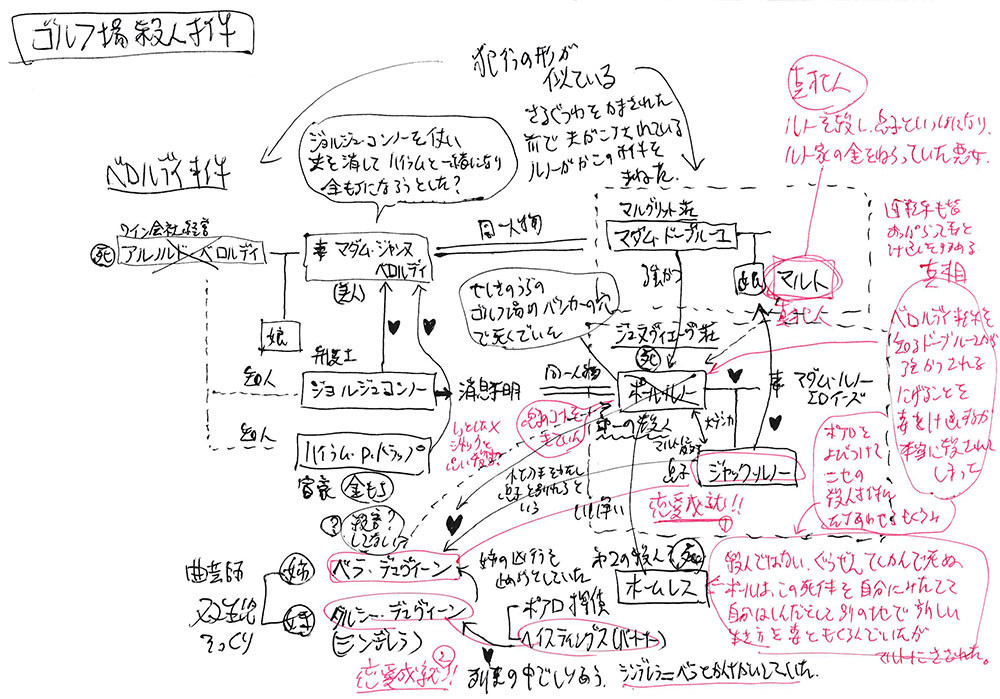 ゴルフ場殺人事件
犯行の形が
似ている
さるぐつわをかまされた
前で夫がころされている
ルノーがこの事件を
まねた。
真犯人
ルトを殺し、息子といっしょになり、
ルト家の金をねらっていた悪女。
ベロルディ事件
ジョルジュ・コンノーを使い
夫を消してハイラムと一緒になり
金もちになろうとした?
ワイン会社経営
死
アルノルド・ベロルディ
妻 マダム・ジャンヌ
ベロルディ
(美人)
同一人物
マルグリット荘
マダム・ドーブルーユ
娘
マルト
真犯人
真相
ベロルディ事件を
知るドーブルーユが
にげることを
妻をけ
本当に殺されて
しまった
娘
ゴルフ場のバンカーの穴
で死んでいた
ジュヌヴィエーヴ荘
死
弁護士
知人
ジョルジュコンノー
消息不明
同一人物
ポール・ルノー
妻 マダム・ルノー
エロイーズ
知人
ハイラム・P・トラップ
富豪
金もち
第一の殺人
大ゲンカ
息子
ジャック・ルノー
恋愛成就!!
①
ポアロを
よびつけて
ニセの
殺人事件に
息子と別れろと
いう
?
殺害?
してない?
曲芸師
双生児
そっくり
姉
ベラ・デュヴィーン
妹
ダルシー・デュヴィーン
(シンデレラ)
姉の凶行を
止めようとしていた
第2の殺人?
死
ホームレス
ポアロ 探偵
ヘイスティングス(パートナー)
恋愛成就!!
②
列車の中でしりあう。
シンデレラ=ベラとかんちがいしていた。
殺人ではない、ぐうぜんてんかんで死ぬ
ポールは、この死体を自分にみたてて
自分はしんだとして別の地で新しい
生き方を妻ともくろんでいたが
マルトにころされた。